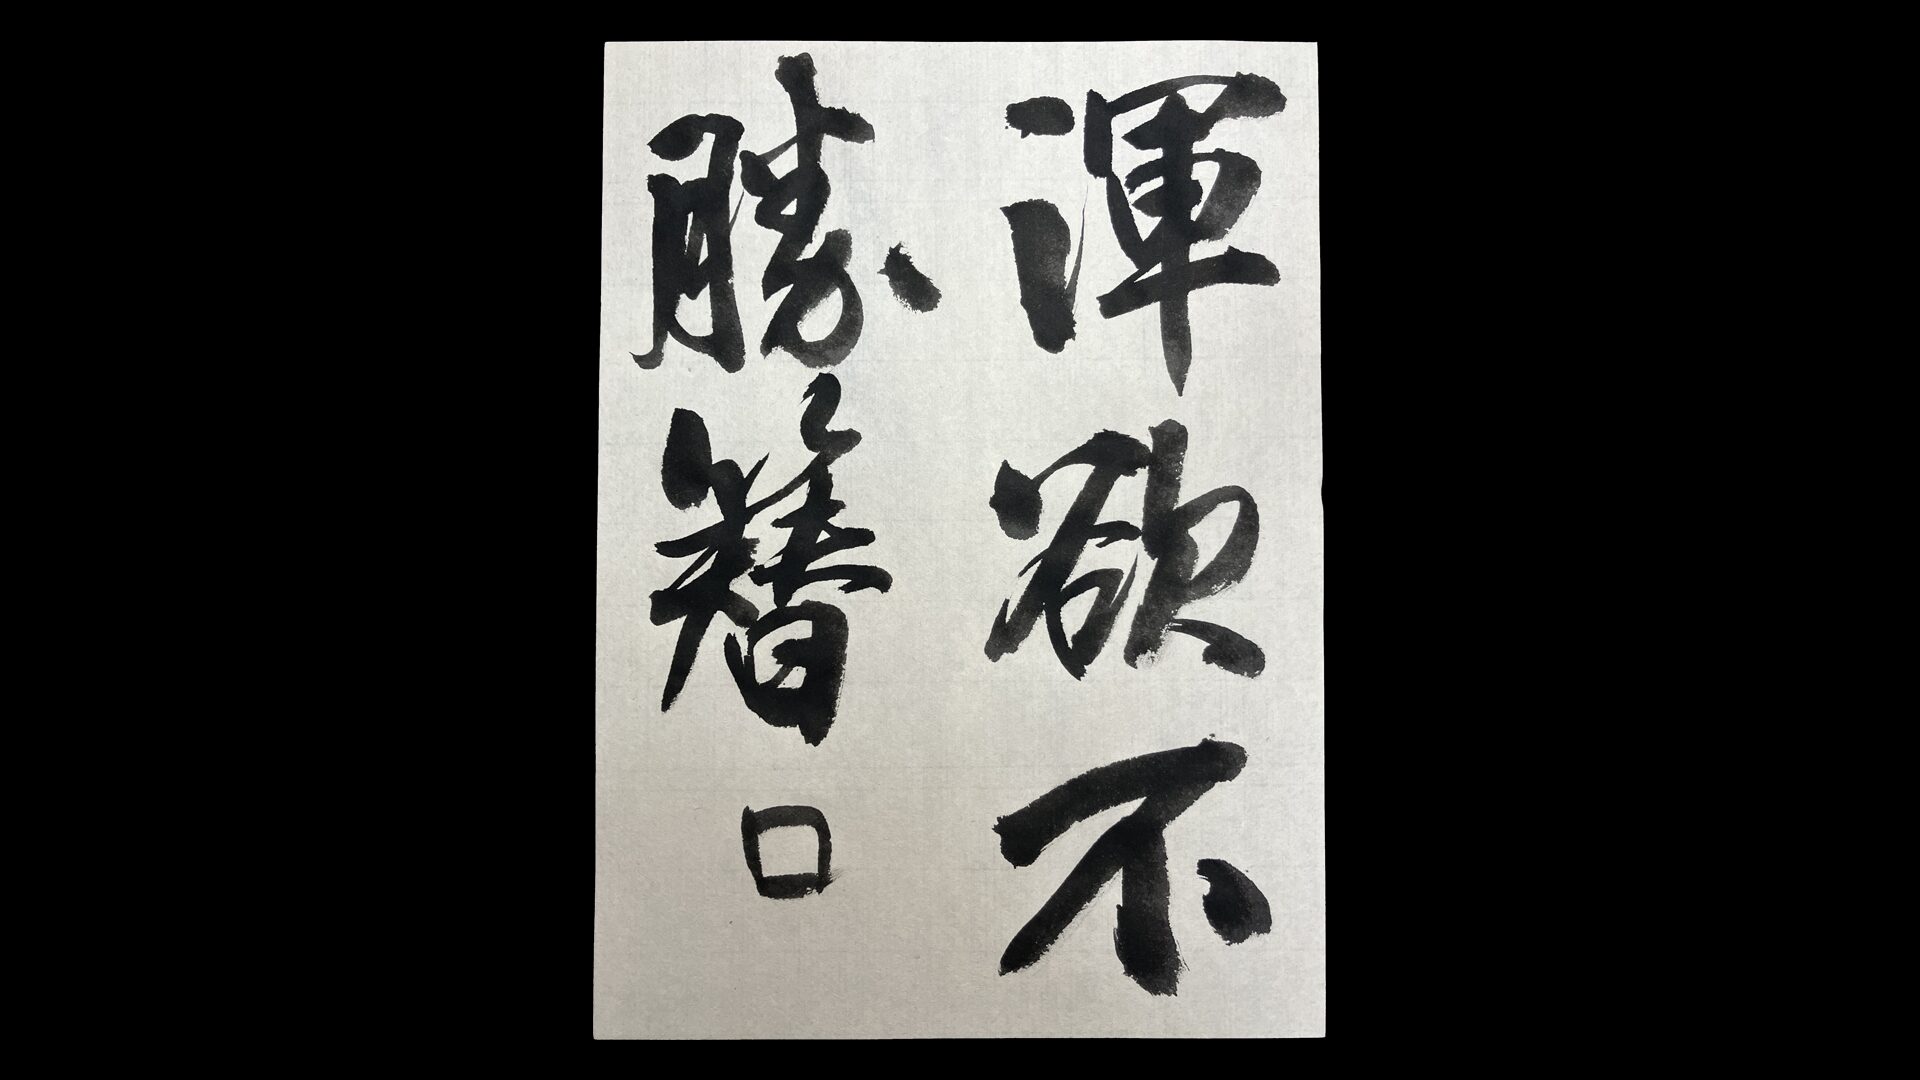 渾欲不
勝簪口